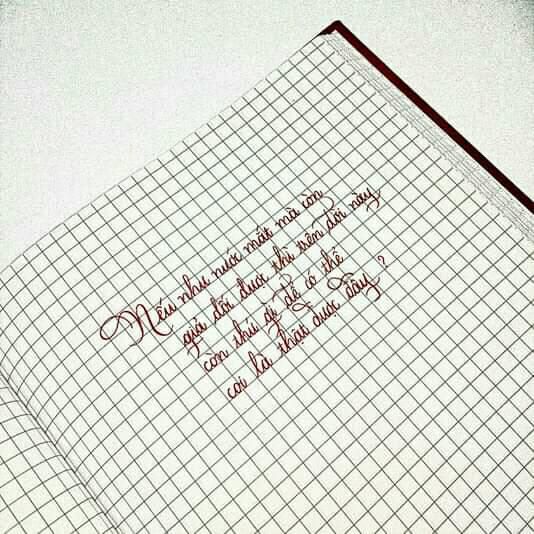 Nếu như nước mắt mà còn
giả dối được thì trên đời này
còn thứ gì để có thể
coi là thật được đây ?